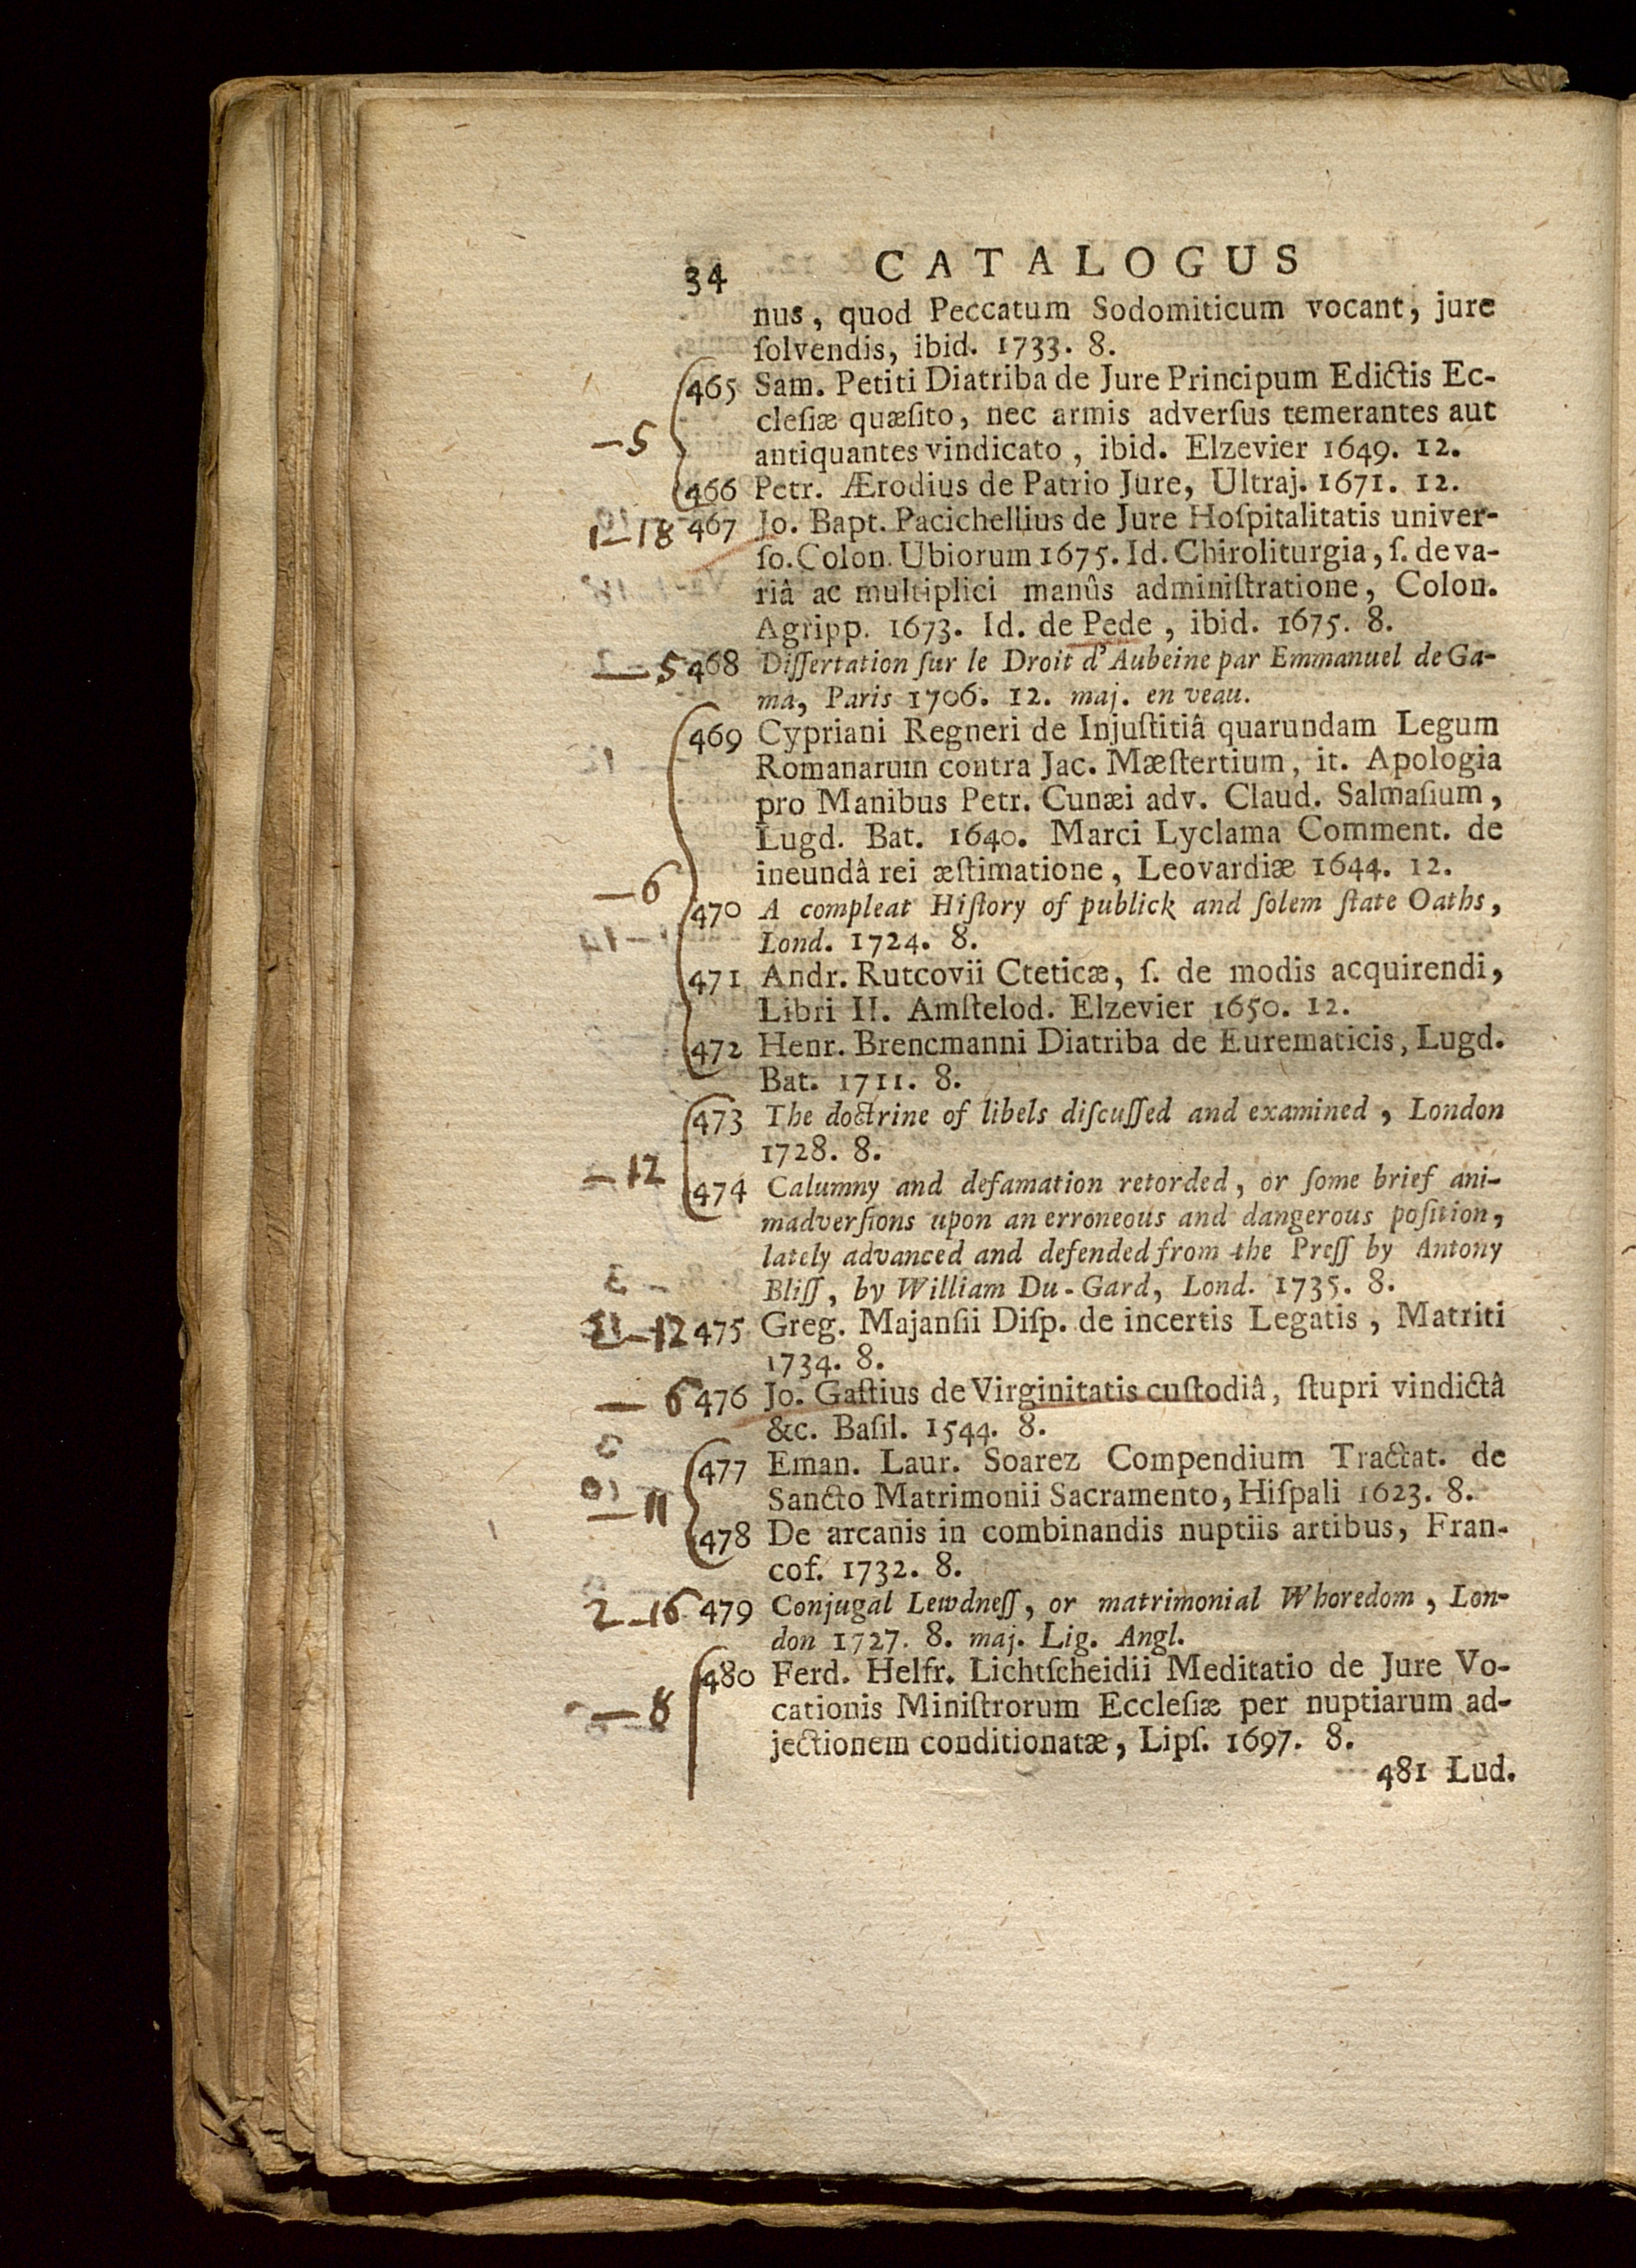 34 CATALOGUS
nus, quod Peccatum Sodomiticum vocant, jure
ſolvendis, ibid. 1733. 8.
465 Sam. Petiti Diatriba de Jure Principum Edictis Ec-
cleſiæ quæſito, nec armis adverſus temerantes aut
—5
antiquantes vindicato, ibid. Elzevier 1649. 12.
466 Petr. Ærodius de Patrio Jure, Ultraj. 1671. 12.
1—18 467 Jo. Bapt. Pacichellius de Jure Hoſpitalitatis univer-
ſo. Colon. Ubiorum 1675. Id. Chiroliturgia, ſ. de va-
riâ ac multiplici manûs adminiſtratione, Colon.
Agripp. 1673. Id. de Pede, ibid. 1675. 8.
—5 468 Diſſertation ſur le Droit d'Aubeine par Emmanuel de Ga-
ma, Paris 1706. 12. maj. en veau.
469 Cypriani Regneri de Injuſtitiâ quarundam Legum
Romanarum contra Jac. Mæſtertium, it. Apologia
pro Manibus Petr. Cunæi adv. Claud. Salmaſium,
Lugd. Bat. 1640. Marci Lyclama Comment. de
ineundâ rei æſtimatione, Leovardiæ 1644. 12.
—6
470 A compleat Hiſtory of publick and ſolem ſtate Oaths,
Lond. 1724. 8.
471 Andr. Rutcovii Cteticæ, ſ. de modis acquirendi,
Libri II. Amſtelod. Elzevier 1650. 12.
472 Henr. Brencmanni Diatriba de Eurematicis, Lugd.
Bat. 1711. 8.
473 The doctrine of libels diſcuſſed and examined, London
1728. 8.
—12
474 Calumny and defamation retorded, or ſome brief ani-
madverſions upon an erroneous and dangerous poſition,
lately advanced and defended from the Preſſ by Antony
Bliſſ, by William Du-Gard, Lond. 1735. 8.
—12 475 Greg. Majanſii Diſp. de incertis Legatis, Matriti
1734. 8.
—6 476 Jo. Gaſtius de Virginitatis cuſtodiâ, ſtupri vindictâ
&c. Baſil. 1544. 8.
477 Eman. Laur. Soarez Compendium Tractat. de
Sancto Matrimonii Sacramento, Hiſpali 1623. 8.
—11
478 De arcanis in combinandis nuptiis artibus, Fran-
cof. 1732. 8.
2—16 479 Conjugal Lewdneſſ, or matrimonial Whoredom, Lon-
don 1727. 8. maj. Lig. Angl.
480 Ferd. Helfr. Lichtſcheidii Meditatio de Jure Vo-
—8 cationis Miniſtrorum Eccleſiæ per nuptiarum ad-
jectionem conditionatæ, Lipſ. 1697. 8.
481 Lud.